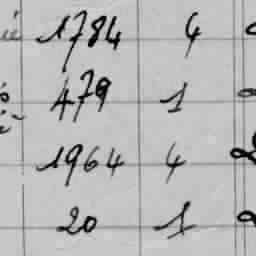 1784 4
479 1
1964 4
20 1